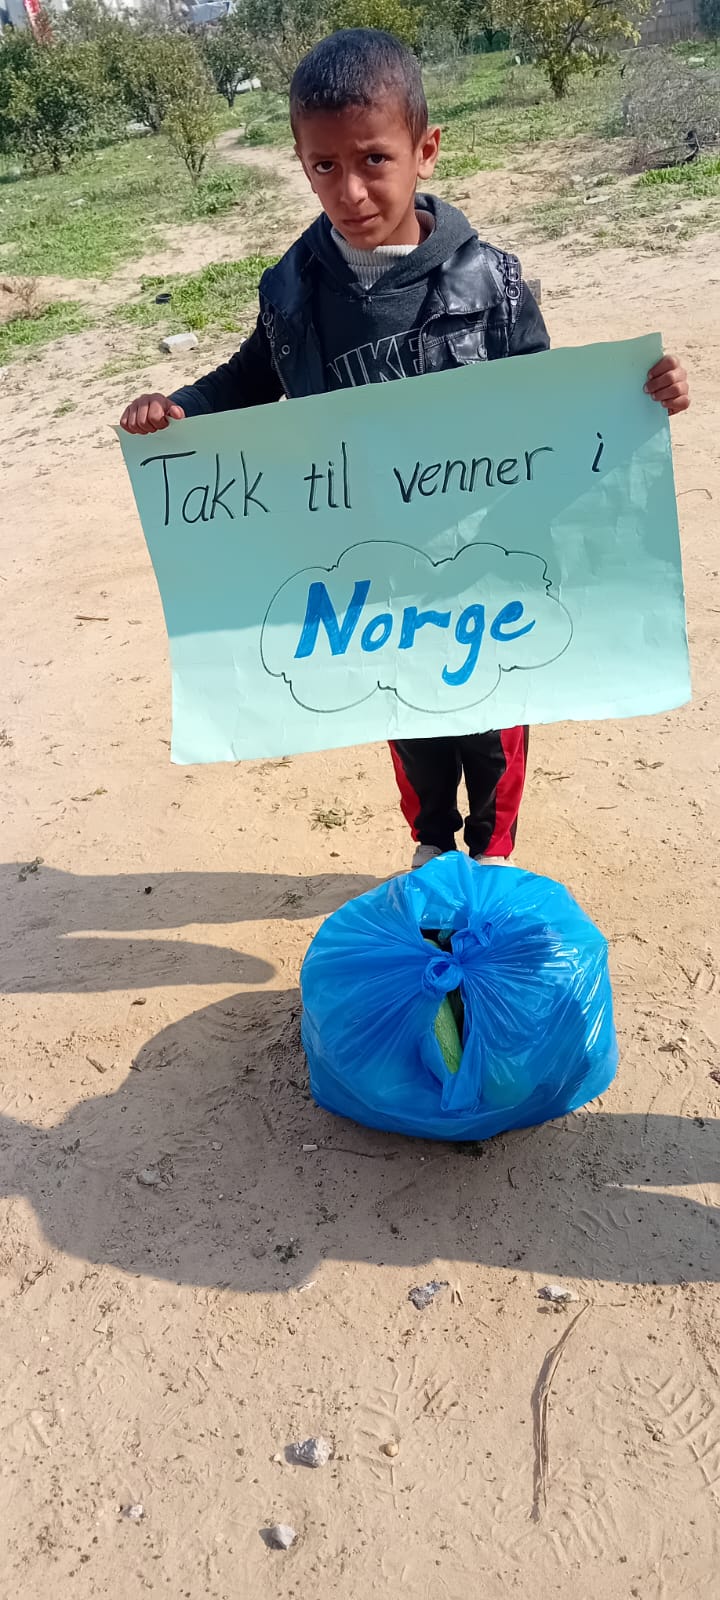 NIKE
Takk til venner i
Norge